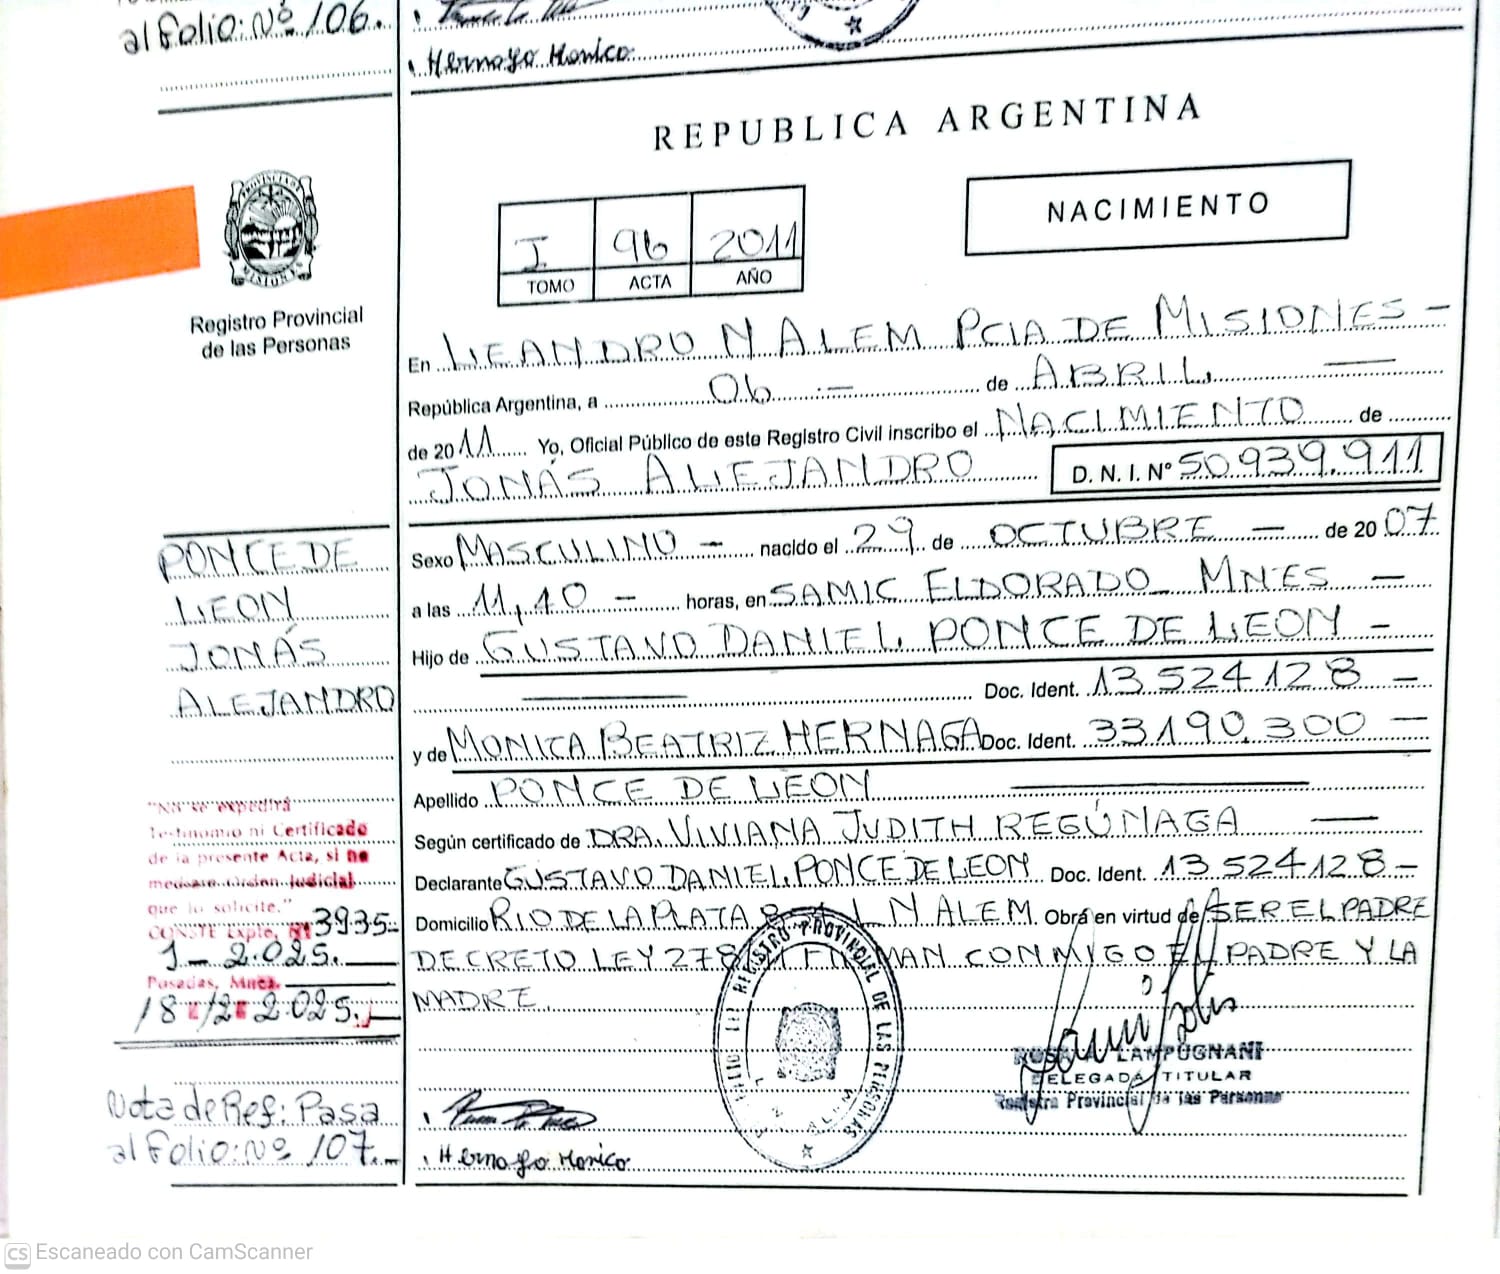 al folio: Nº 106.
Hernago Monica
REPUBLICA ARGENTINA
NACIMIENTO
I 96 2011
TOMO ACTA AÑO
PROVINCIA DE
MISIONES
Registro Provincial
de las Personas
En LEANDRO N ALEM PCIA DE MISIONES -
República Argentina, a 06 .- de ABRIL
de 2011 Yo, Oficial Público de este Registro Civil inscribo el NACIMIENTO de
JONÁS ALEJANDRO D. N. I. Nº 50.939.911
PONCE DE
LEON
JONÁS
ALEJANDRO
Sexo MASCULINO - nacido el 29 de OCTUBRE - de 2007
a las 11,10 - horas, en SAMIC ELDORADO MNES -
Hijo de GUSTAVO DANIEL PONCE DE LEON -
Doc. Ident. 13.524.128 -
y de MONICA BEATRIZ HERNAGA Doc. Ident. 33.190.300 -
Apellido PONCE DE LEON
Según certificado de DRA. VIVIANA JUDITH REGÚNAGA
Declarante GUSTAVO DANIEL PONCE DE LEON Doc. Ident. 13.524.128 -
Domicilio RIO DE LA PLATA L N ALEM. Obra en virtud de SER EL PADRE
DECRETO LEY 278 CONMIGO EL PADRE Y LA
MADRE.
"No se expedirá
Testimonio ni Certificado
de la presente Acta, si no
mediare Orden Judicial
que lo solicite."
CONSTE Expte. Nº 3935-
1- 2.025.
Posadas, Mnes.
18 /2 2.025.
REGISTRO PROVINCIAL DE LAS PERSONAS
L. N. ALEM
LAMPUGNANI
DELEGADA TITULAR
Registro Provincial de las Personas
Nota de Ref: Pasa
al folio: Nº 107.-
Hernago Monica
CS Escaneado con CamScanner